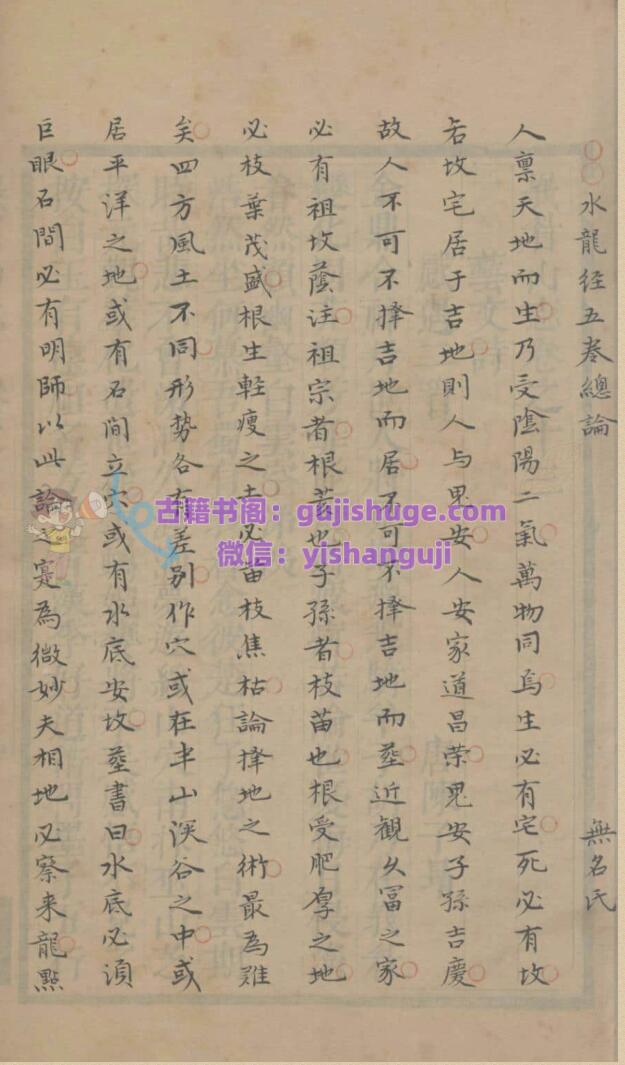 水龍經五卷總論 無名氏
人禀天地而生乃受陰陽二氣萬物同焉生必有宅死必有坟
若坟宅居于吉地則人与鬼安人安家道昌荣鬼安子孫吉慶
故人不可不擇吉地而居不可不擇吉地而塟近観久冨之家
必有祖坟蔭注祖宗者根荄也子孫者枝苗也根受肥厚之地
必枝葉茂盛根生軽瘦之土必苗枝焦枯論擇地之術最為难
矣四方風土不同形势各有差别作穴或在半山溪谷之中或
居平洋之地或有石间立穴或有水底安坟塟書曰水底必湏
巨眼石間必有明師以此論之寔為微妙夫相地必察来龍點
古籍书图：gujishuge.com
微信：yishanguji